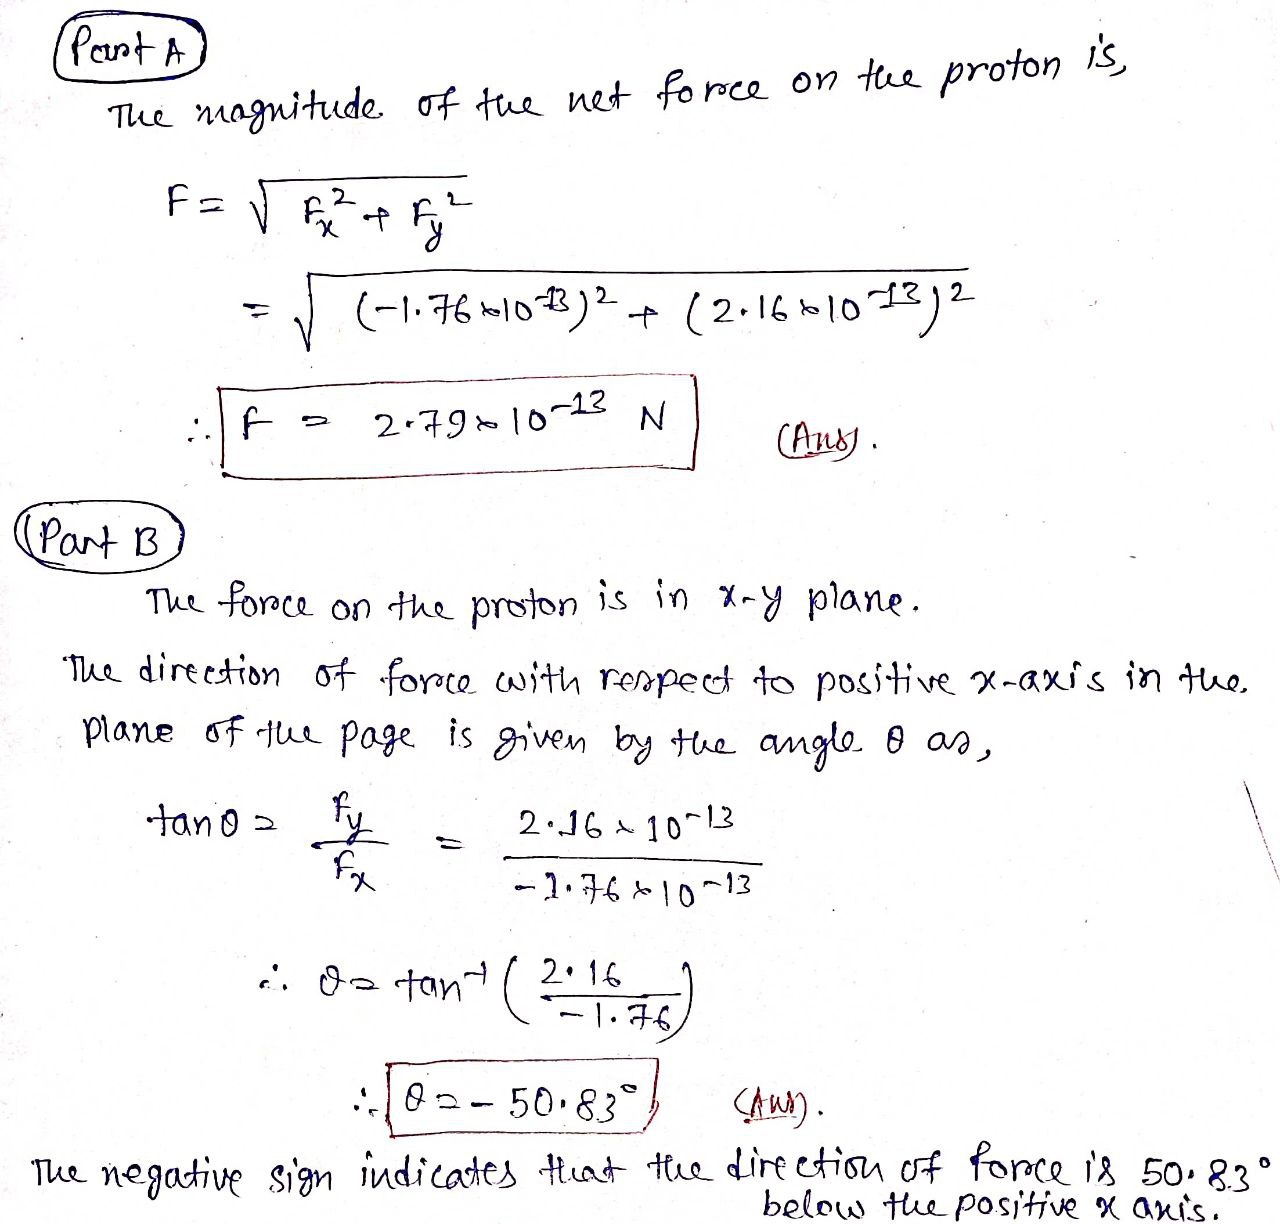 Part A
The magnitude of the net force on the proton is,
F = √(Fx² + Fy²)
= √((-1.76×10⁻¹³)² + (2.16×10⁻¹³)²)
∴ F = 2.79×10⁻¹³ N (Ans).
Part B
The force on the proton is in x-y plane.
The direction of force with respect to positive x-axis in the
plane of the page is given by the angle θ as,
tanθ = Fy/Fx = 2.16×10⁻¹³/-1.76×10⁻¹³
∴ θ = tan⁻¹(2.16/-1.76)
∴ θ = -50.83° (Ans).
The negative sign indicates that the direction of force is 50.83°
below the positive x axis.